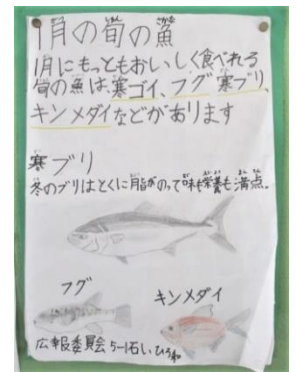 1月の旬の魚
1月にもっともおいしく食べれる
旬の魚は、寒ゴイ、フグ寒ブリ、
キンメダイなどがあります
寒ブリ
冬のブリはとくに脂がのって味も栄養も満点。
フグ
キンメダイ
広報委員会 5-1石い